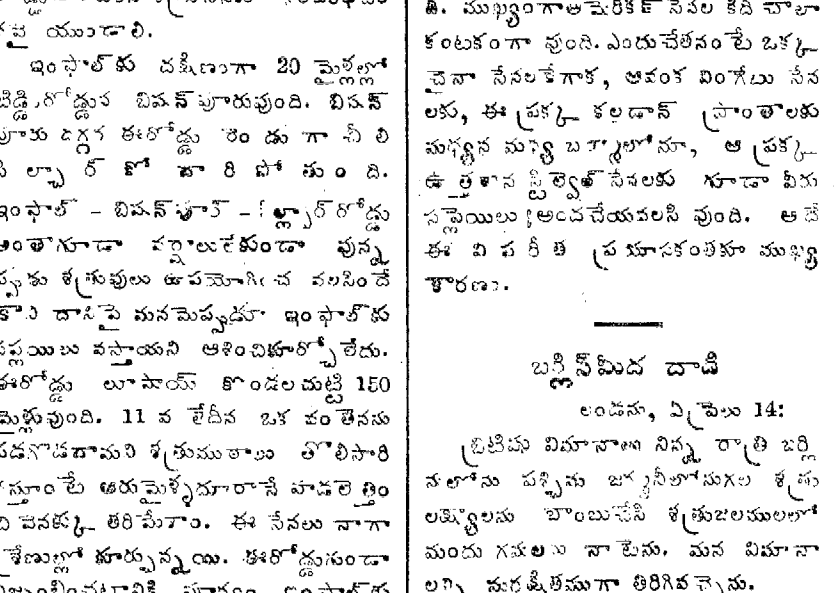 పై యుండాలి.
ఇంఫాల్‌కు దక్షిణంగా 20 మైళ్లల్లో
బిషన్‌పూరువుంది. బిషన్
దగ్గర ఈరోడ్డు రెండు గా చీ లి
పో తుం ది.
ఇంఫాల్ - బిషన్‌పూర్ - రోడ్డు
అంతాగూడా వర్షాలులేకుండా వున్న
శత్రువులు ఉపయోగించ వలసిందే
కాని దానిపై మనమెప్పుడూ ఇంఫాల్‌కు
సప్లయిలు వస్తాయని ఆశించికూర్చోలేదు.
ఈరోడ్డు లూసాయ్ కొండలచుట్టి 150
మైళ్లువుంది. 11 వ తేదీన ఒక వంతెనను
పడగొడదామని శత్రుముఠాలు తొలిసారి
వస్తూంటే ఆరుమైళ్ళదూరానే
వెనక్కు తరిమేశాం. ఈ సేనలు నాగా
శ్రేణుల్లో కూర్చున్నయి. ఈరోడ్డుగుండా
ఇంఫాల్‌కు
ది. ముఖ్యంగాఅమెరికన్ సేనల కిది చాలా
కంటకంగా వుంది. ఎందుచేతనంటే ఒక్క
చైనా సేనలకేగాక, ఆవంక వింగేటు సేన
లకు, ఈ ప్రక్క కలడాన్ ప్రాంతాలకు
మధ్యన మధ్య బర్మాలోనూ, ఆ ప్రక్క
ఉ త్తరాన స్టిల్వెల్ సేనలకు గూడా వీరు
సప్లైయిలు అందచేయవలసి వుంది. ఆదే
ఈ వి ప రీ త ప్రయాసకంతకూ ముఖ్య
కారణం.
బర్లిన్‌మీద దాడి
లండను, ఏప్రిలు 14:
బ్రిటిషు విమానాలు నిన్న రాత్రి బర్లి
నులోను పశ్చిమ జర్మనీలోనుగల శత్రు
లక్ష్యాలను బాంబుచేసి శత్రుజలములలో
మందు గనులను నాటెను. మన విమానా
లన్ని సురక్షితముగా తిరిగివచ్చెను.